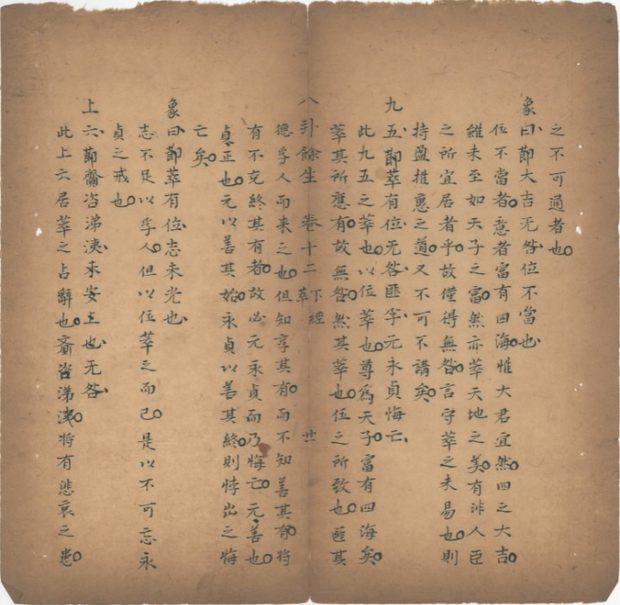 之不可過者也
象曰節大吉无咎位不當也
位不當者意者富有四海惟大君宜然四之大吉
雖未至如天子之富然亦萃天地之美有非人臣
之所宜居者乎故僅得無咎言守萃之未易也則
持盈推惠之道又不可不講矣
九五節萃有位无咎匪孚元永貞悔亡
此九五之萃也以位萃也尊爲天子富有四海矣
萃其所應有故無咎然其萃也位之所致也匪其
八卦餘生 卷十二 下經 萃 廿一
德孚人而來之也但知享其有而不知善其有將
有不克終其有者故必元永貞而乃悔亡元善也
貞正也元以善其始永貞以善其終則悖出之悔
亡矣
象曰節萃有位志未光也
志不足以孚人但以位萃之而已是以不可忘永
貞之戒也
上六節齎咨涕洟未安上也无咎
此上六居萃之占辭也齎咨涕洟將有悲哀之患